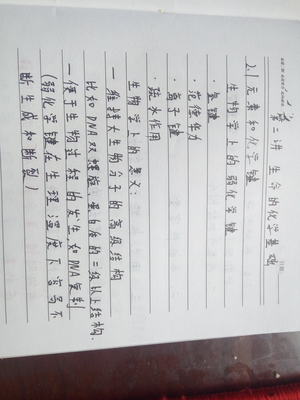 第二讲 生命的化学基础
2.1 元素和化学键
生物学上的弱化学键
· 氢键
· 范德华力
· 离子键
· 疏水作用
生物学上的意义:
— 维持大生物分子的高级结构
比如 DNA 双螺旋, 蛋白质的二级以上结构.
— 便于生物过程的发生 如 DNA 复制
(弱化学键在生理温度下容易不
断生成和断裂)